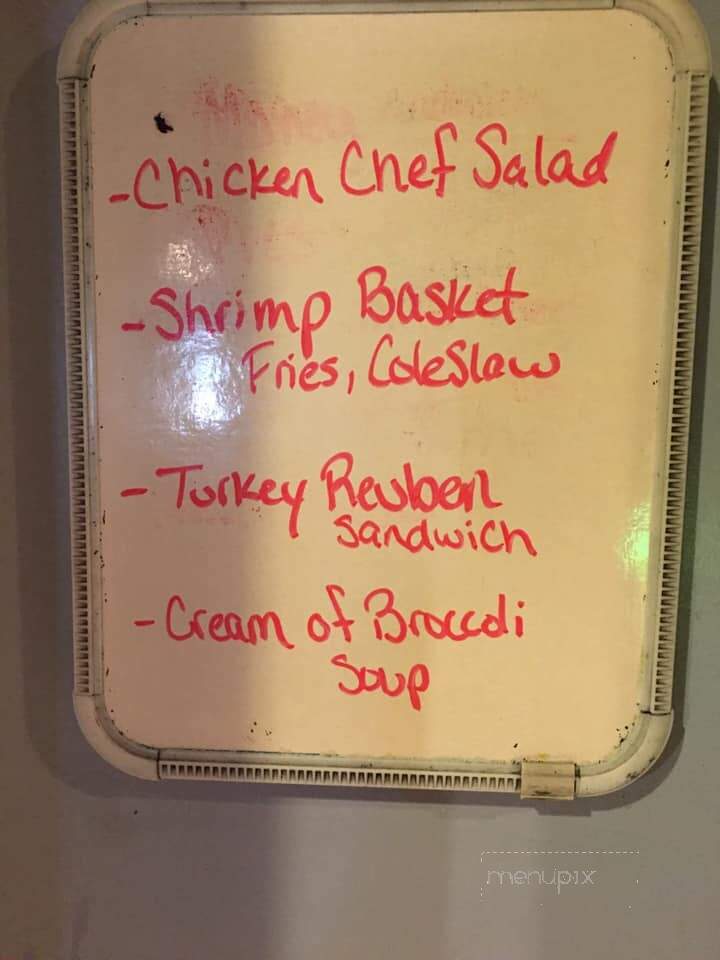 - Chicken Chef Salad
- Shrimp Basket
Fries, ColeSlaw
- Turkey Reuben
Sandwich
- Cream of Broccoli
Soup
menupix